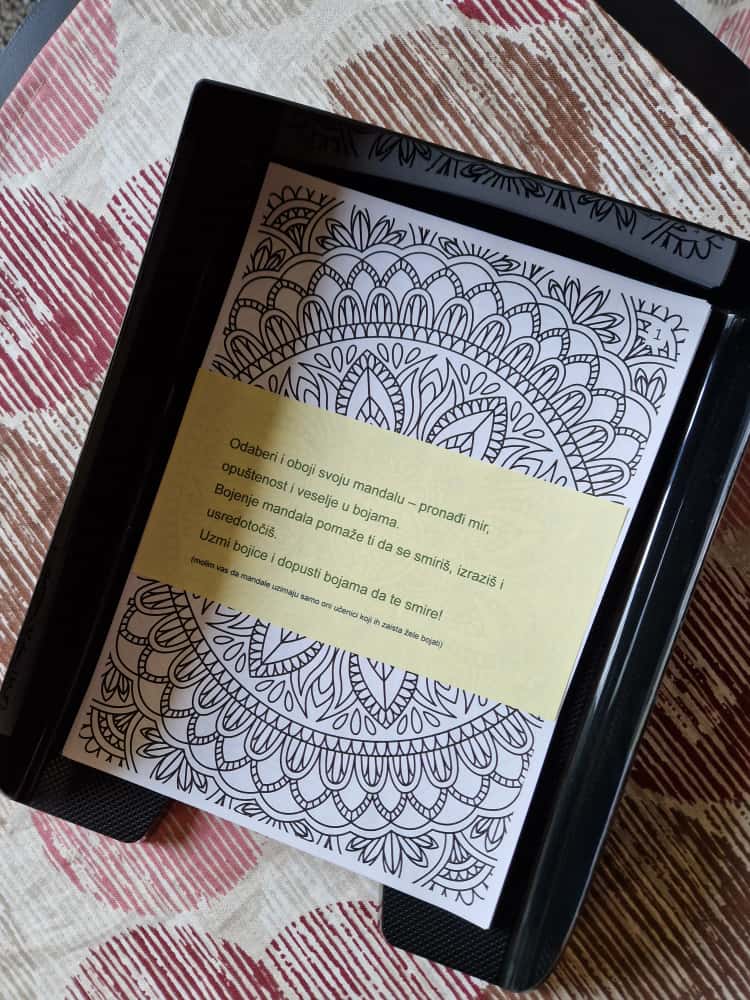 1
Odaberi i oboji svoju mandalu – pronađi mir,
opuštenost i veselje u bojama.
Bojenje mandala pomaže ti da se smiriš, izraziš i
usredotočiš.
Uzmi bojice i dopusti bojama da te smire!
(molim vas da mandale uzimaju samo oni učenici koji ih zaista žele bojati)